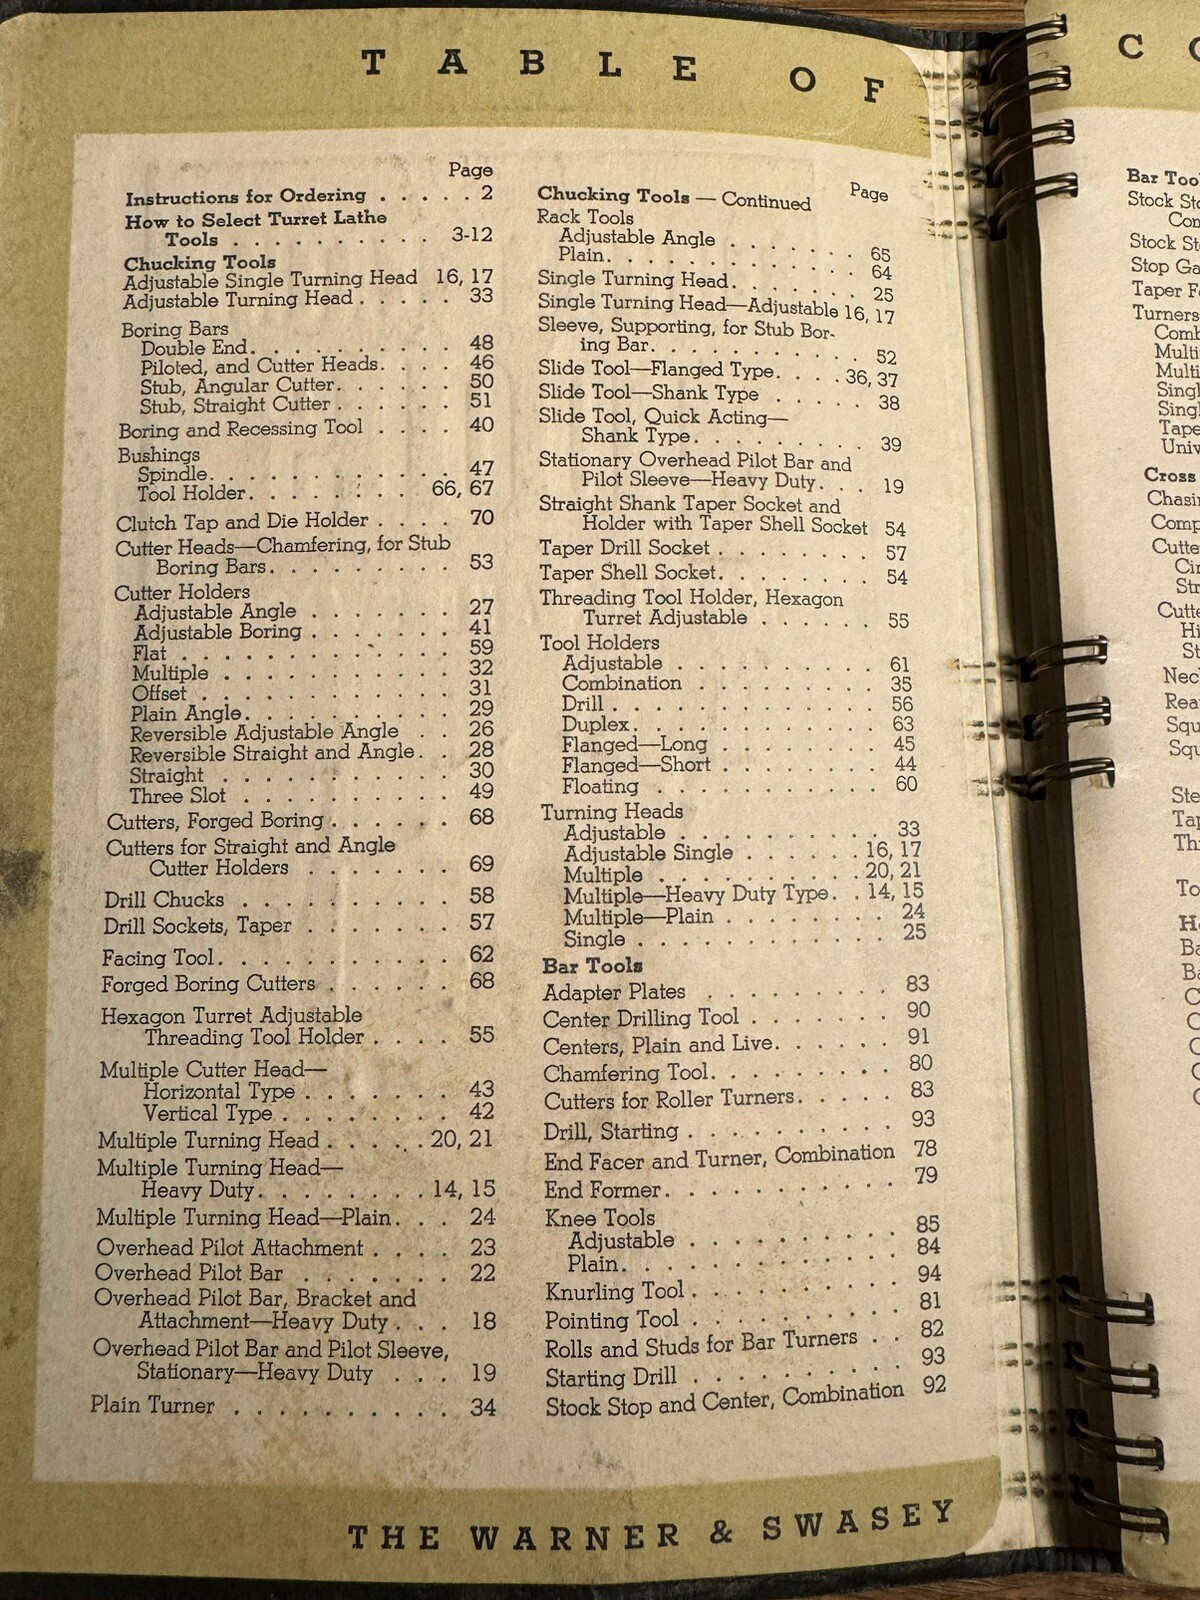 TABLE OF
Page
Instructions for Ordering . . . . . 2
How to Select Turret Lathe
Tools . . . . . . . . . . 3-12
Chucking Tools
Adjustable Single Turning Head 16, 17
Adjustable Turning Head . . . . . 33
Boring Bars
Double End. . . . . . . . . . 48
Piloted, and Cutter Heads. . . . 46
Stub, Angular Cutter. . . . . . 50
Stub, Straight Cutter . . . . . . 51
Boring and Recessing Tool . . . . 40
Bushings
Spindle. . . . . . . . . . . . 47
Tool Holder. . . . . . . . 66, 67
Clutch Tap and Die Holder . . . . 70
Cutter Heads—Chamfering, for Stub
Boring Bars. . . . . . . . . 53
Cutter Holders
Adjustable Angle . . . . . . . 27
Adjustable Boring . . . . . . . 41
Flat . . . . . . . . . . . . . 59
Multiple . . . . . . . . . . . 32
Offset . . . . . . . . . . . . 31
Plain Angle. . . . . . . . . . 29
Reversible Adjustable Angle . . 26
Reversible Straight and Angle. . 28
Straight . . . . . . . . . . . 30
Three Slot . . . . . . . . . . 49
Cutters, Forged Boring . . . . . . 68
Cutters for Straight and Angle
Cutter Holders . . . . . . . 69
Drill Chucks . . . . . . . . . . 58
Drill Sockets, Taper . . . . . . . 57
Facing Tool. . . . . . . . . . . 62
Forged Boring Cutters . . . . . . 68
Hexagon Turret Adjustable
Threading Tool Holder . . . . 55
Multiple Cutter Head—
Horizontal Type . . . . . . . 43
Vertical Type . . . . . . . . 42
Multiple Turning Head . . . . . 20, 21
Multiple Turning Head—
Heavy Duty. . . . . . . . 14, 15
Multiple Turning Head—Plain. . . 24
Overhead Pilot Attachment . . . . 23
Overhead Pilot Bar . . . . . . . 22
Overhead Pilot Bar, Bracket and
Attachment—Heavy Duty . . . 18
Overhead Pilot Bar and Pilot Sleeve,
Stationary—Heavy Duty . . . 19
Plain Turner . . . . . . . . . . 34
Page
Chucking Tools — Continued
Rack Tools
Adjustable Angle . . . . . . 65
Plain. . . . . . . . . . . . . 64
Single Turning Head. . . . . . . 25
Single Turning Head—Adjustable 16, 17
Sleeve, Supporting, for Stub Bor-
ing Bar. . . . . . . . . . . 52
Slide Tool—Flanged Type. . . . 36, 37
Slide Tool—Shank Type . . . . . 38
Slide Tool, Quick Acting—
Shank Type. . . . . . . . . 39
Stationary Overhead Pilot Bar and
Pilot Sleeve—Heavy Duty. . . 19
Straight Shank Taper Socket and
Holder with Taper Shell Socket 54
Taper Drill Socket . . . . . . . . 57
Taper Shell Socket. . . . . . . . 54
Threading Tool Holder, Hexagon
Turret Adjustable . . . . . . 55
Tool Holders
Adjustable . . . . . . . . . . 61
Combination . . . . . . . . . 35
Drill . . . . . . . . . . . . . 56
Duplex. . . . . . . . . . . . 63
Flanged—Long . . . . . . . . 45
Flanged—Short . . . . . . . . 44
Floating . . . . . . . . . . . 60
Turning Heads
Adjustable . . . . . . . . . . 33
Adjustable Single . . . . . . 16, 17
Multiple . . . . . . . . . . 20, 21
Multiple—Heavy Duty Type. . 14, 15
Multiple—Plain . . . . . . . . 24
Single . . . . . . . . . . . . 25
Bar Tools
Adapter Plates . . . . . . . . 83
Center Drilling Tool . . . . . . . 90
Centers, Plain and Live. . . . . . 91
Chamfering Tool. . . . . . . . . 80
Cutters for Roller Turners. . . . . 83
Drill, Starting . . . . . . . . . . 93
End Facer and Turner, Combination 78
End Former. . . . . . . . . . . 79
Knee Tools
Adjustable . . . . . . . . . . 85
Plain. . . . . . . . . . . . . 84
Knurling Tool . . . . . . . . . . 94
Pointing Tool . . . . . . . . . . 81
Rolls and Studs for Bar Turners . . 82
Starting Drill . . . . . . . . . . 93
Stock Stop and Center, Combination 92
THE WARNER & SWASEY
C
Bar
Stock
Stock
Stop
Taper
Turners
Cross